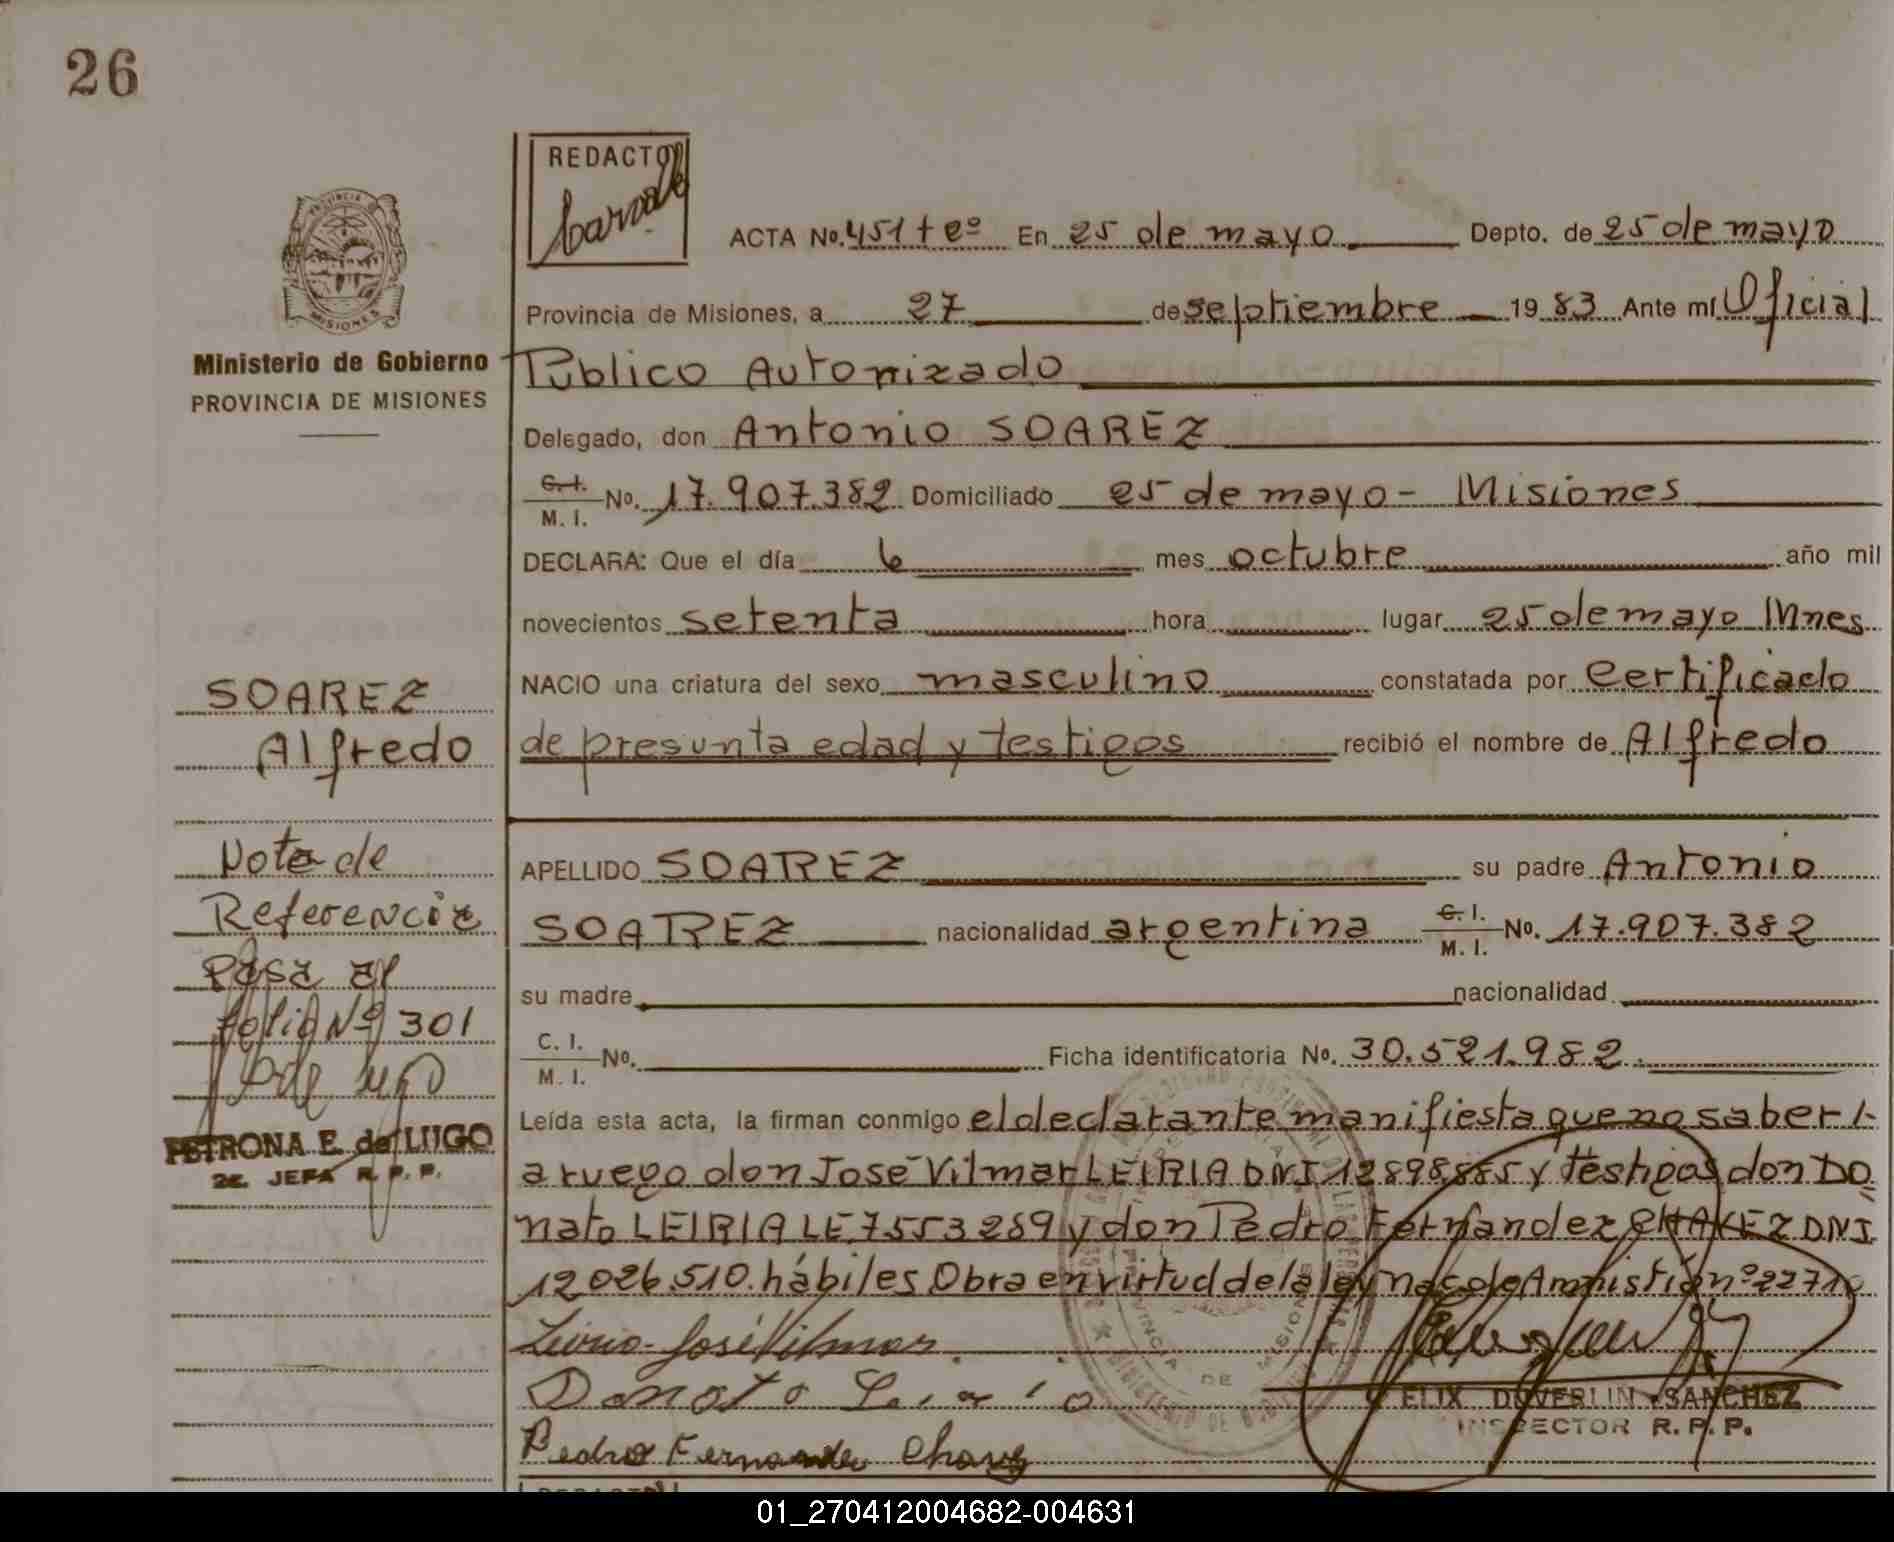 26
REDACTOR
PROVINCIA
MISIONES
Ministerio de Gobierno
PROVINCIA DE MISIONES
ACTA No. 451 tº 2º En 25 de mayo Depto. de 25 de mayo
Provincia de Misiones, a 27 de septiembre 19 83 Ante mí Oficial
Público Autorizado
Delegado, don Antonio SOAREZ
C. I. M. I. No. 17.907.382 Domiciliado 25 de mayo - Misiones
DECLARA: Que el día 6 mes octubre año mil
novecientos setenta hora lugar 25 de mayo Mnes
NACIO una criatura del sexo masculino constatada por Certificado
de presunta edad y testigos recibió el nombre de Alfredo
APELLIDO SOAREZ su padre Antonio
SOAREZ nacionalidad argentina C. I. M. I. No. 17.907.382
su madre nacionalidad
C. I. M. I. No. Ficha identificatoria No. 30.521.982.
Leída esta acta, la firman conmigo el declarante manifiesta que no saber
a ruego don José Vilmar LEIRIA DNI 12898885 y testigos don DO
nato LEIRIA LE 7553289 y don Pedro Fernandez CHAVEZ DNI
12026510. hábiles Obra en virtud de la ley nac de Amnistía nº 22710
José Vilmar
Donato
Pedro Fernandez Chavez
FELIX DUVERLIN SANCHEZ
INSPECTOR R. P. P.
PROVINCIA DE MISIONES
MINISTERIO DE
SOAREZ
Alfredo
Nota de
Referencia
Pasa al
folio Nº 301
PETRONA E. de LUGO
2a. JEFA R. P. P.
01_270412004682-004631